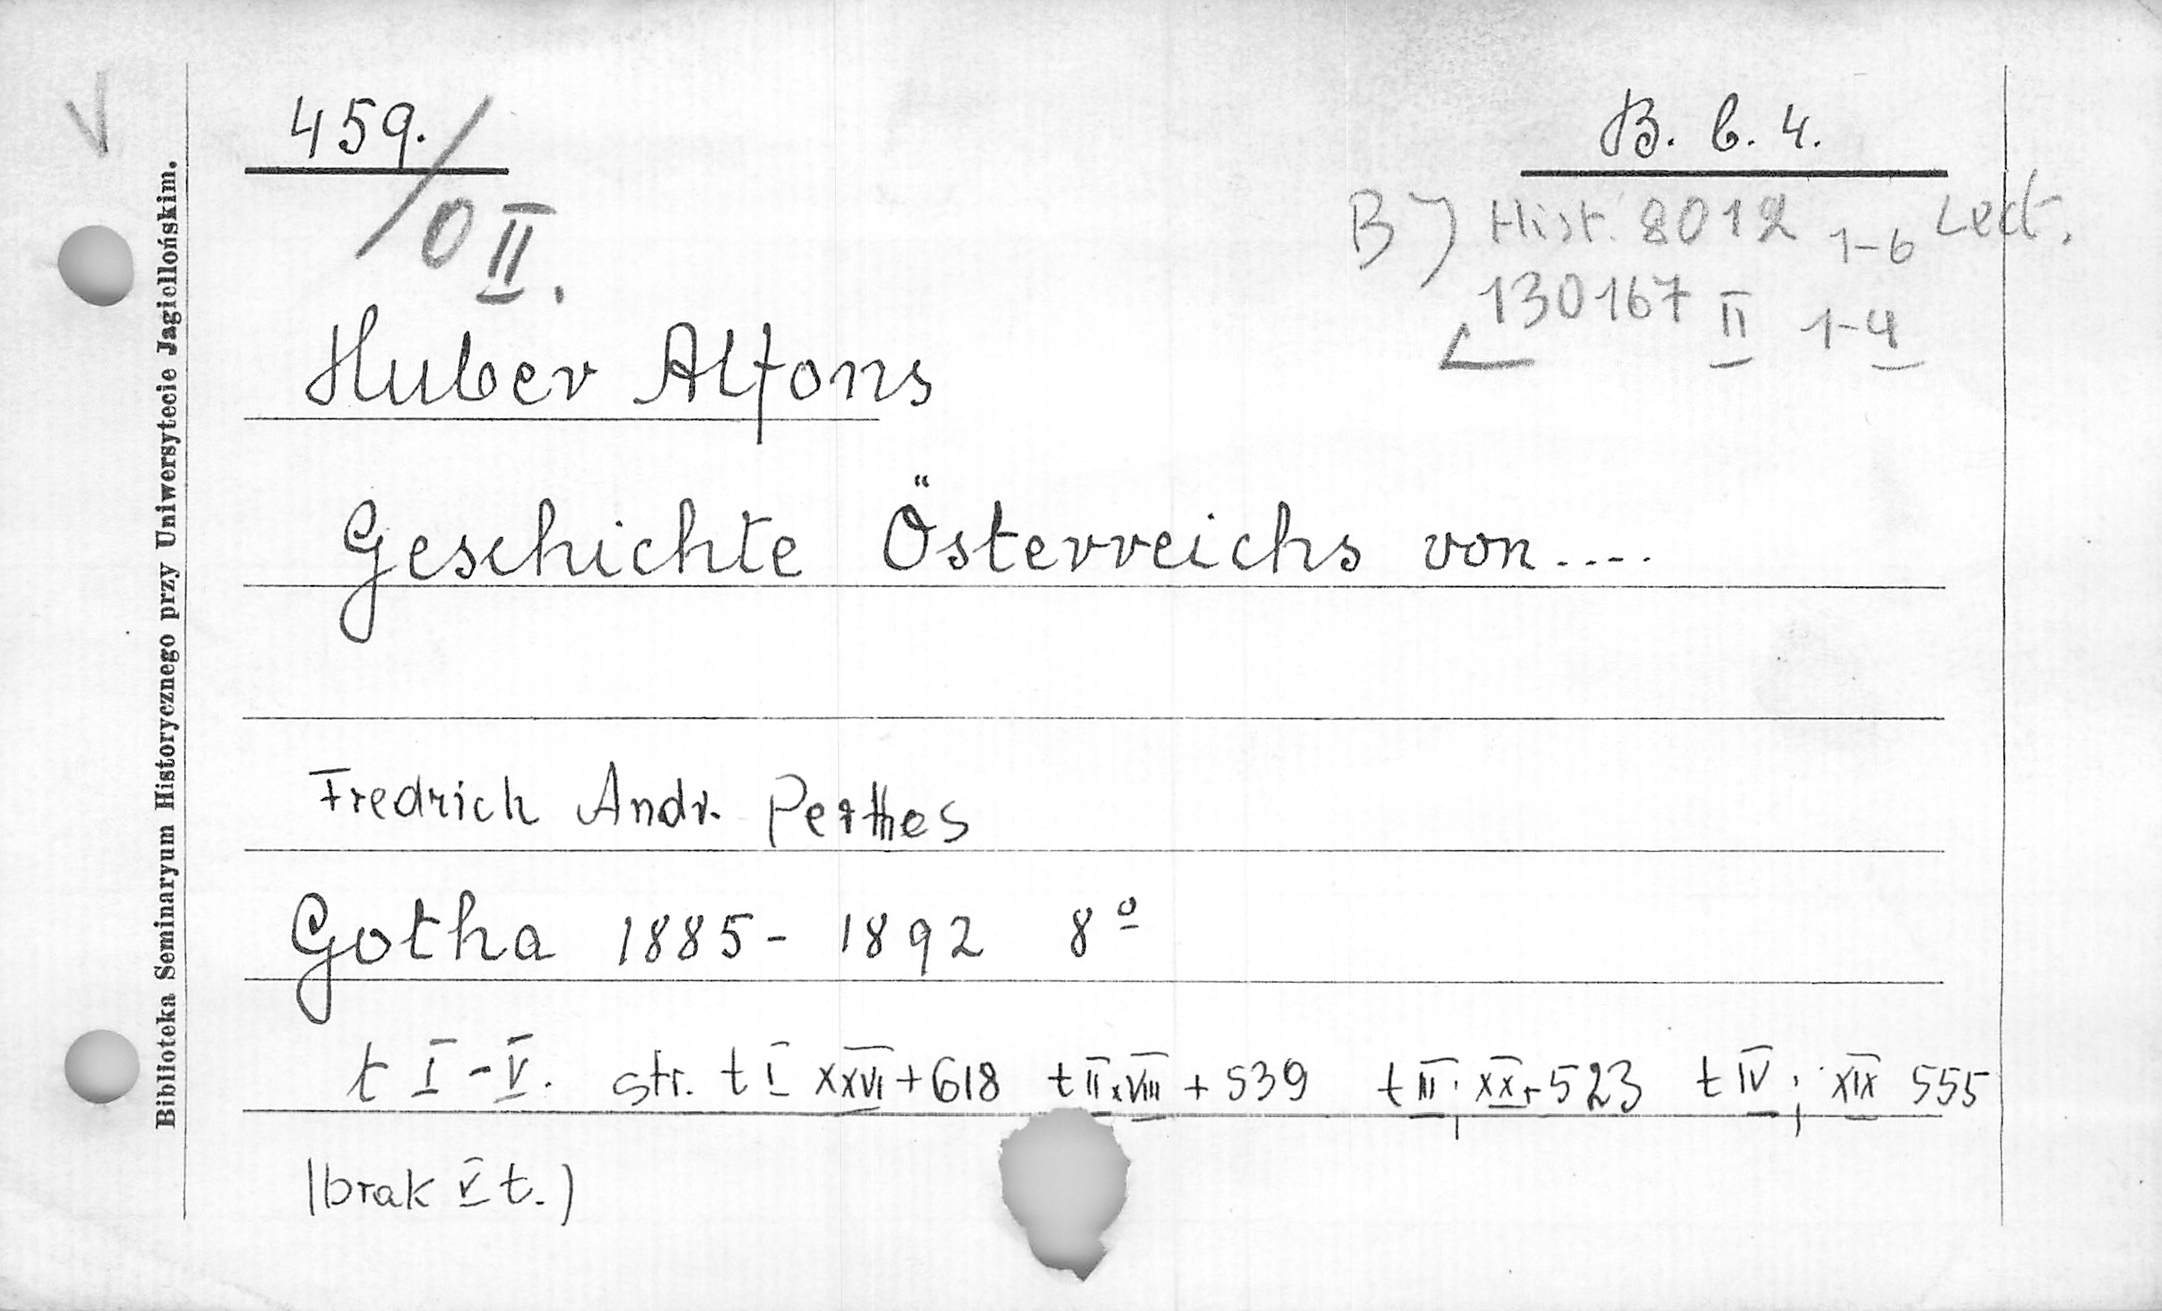 V
459./O II.
B. b. 4.
B) Hist. 8012 1-6 Lect.
130167 II 1-4
Huber Alfons
Geschichte Österreichs von....
Fredrich Andr. Perthes
Gotha 1885- 1892 8º
t I-V. str. t I XXVI+618 t II XVIII + 539 t III; XX+523 t IV; XIX 555
(brak V t.)
Biblioteka Seminaryum Historycznego przy Uniwersytecie Jagiellońskim.